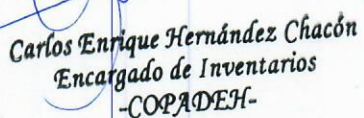 Carlos Enrique Hernández Chacón
Encargado de Inventarios
-COPADEH-